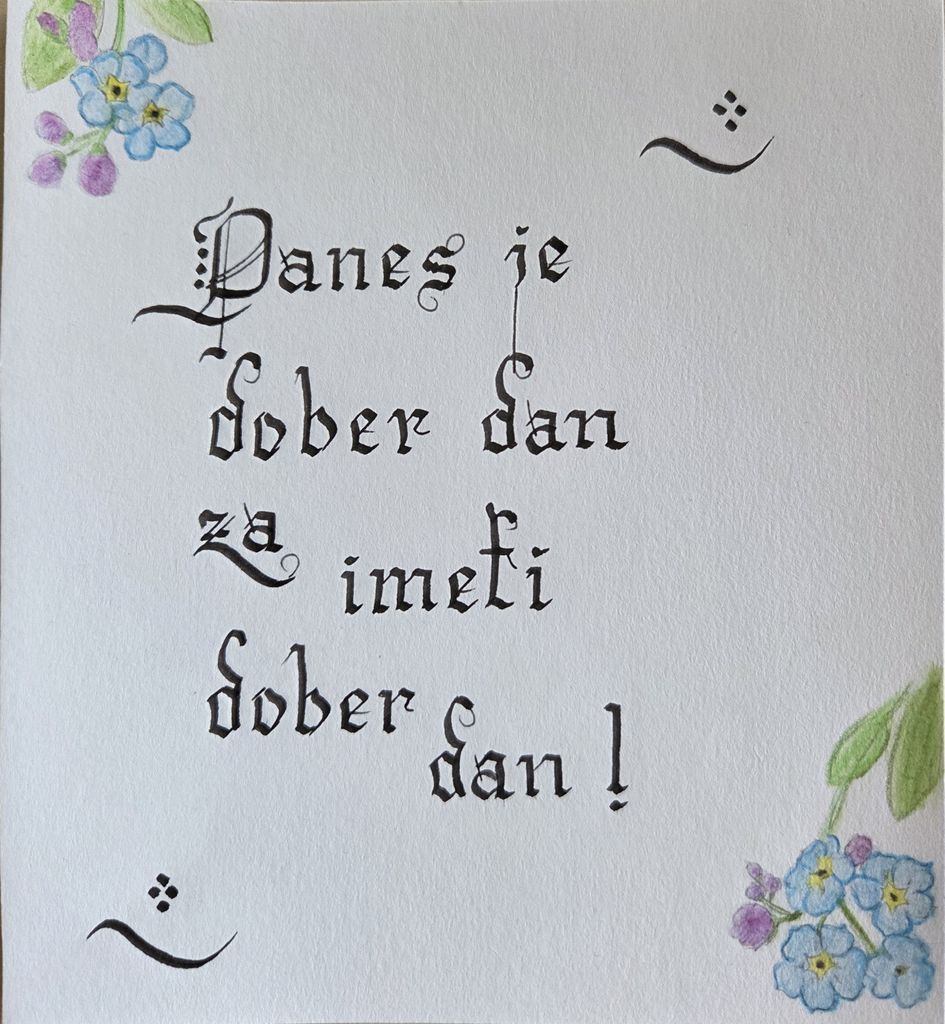 Danes je
dober dan
za imeti
dober dan!